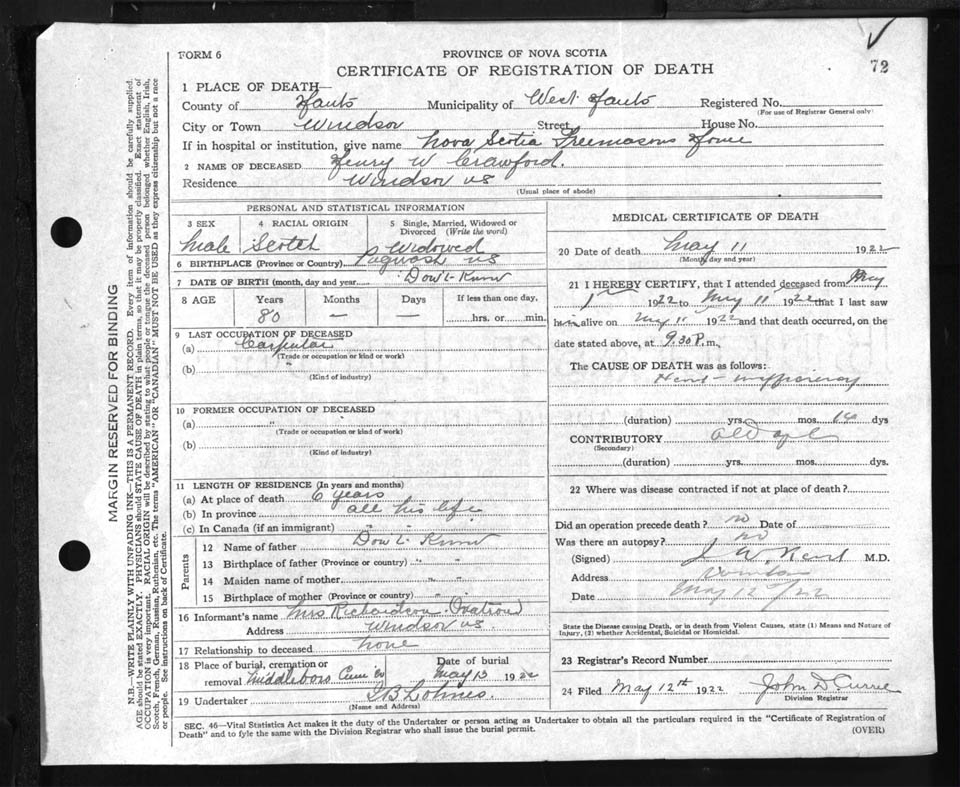 FORM 6
PROVINCE OF NOVA SCOTIA
CERTIFICATE OF REGISTRATION OF DEATH
72
1 PLACE OF DEATH—
County of Hants Municipality of West Hants Registered No.
(For use of Registrar General only)
City or Town Windsor Street House No.
If in hospital or institution, give name Nova Scotia Freemasons Home
2 NAME OF DECEASED Henry W Crawford.
Residence Windsor NS
(Usual place of abode)
PERSONAL AND STATISTICAL INFORMATION
3 SEX 4 RACIAL ORIGIN 5 Single, Married, Widowed or Divorced (Write the word)
Male Scotch Widowed
6 BIRTHPLACE (Province or Country) Pugwash NS
7 DATE OF BIRTH (month, day and year) Don't Know
8 AGE Years Months Days If less than one day,
80 — — hrs. or min.
9 LAST OCCUPATION OF DECEASED
(a) Carpenter
(Trade or occupation or kind or work)
(b) "
(Kind of industry)
10 FORMER OCCUPATION OF DECEASED
(a) "
(Trade or occupation or kind of work)
(b)
(Kind of industry)
11 LENGTH OF RESIDENCE (In years and months)
(a) At place of death 6 years
(b) In province all his life
(c) In Canada (if an immigrant) " "
Parents
12 Name of father Don't Know
13 Birthplace of father (Province or country) " "
14 Maiden name of mother " "
15 Birthplace of mother (Province or country) " "
16 Informant's name Mrs Richardson Matron
Address Windsor NS.
17 Relationship to deceased None
18 Place of burial, cremation or removal Middleboro Date of burial May 13 1922
19 Undertaker
(Name and Address)
MEDICAL CERTIFICATE OF DEATH
20 Date of death May 11 1922
(Month, day and year)
21 I HEREBY CERTIFY, that I attended deceased from May
1 1922 to May 11 1922 that I last saw
him alive on May 11 1922 and that death occurred, on the
date stated above, at 9.30 P.m.
The CAUSE OF DEATH was as follows:
Heart insufficiency
(duration) yrs. mos. dys
CONTRIBUTORY old age
(Secondary)
(duration) yrs. mos. dys.
22 Where was disease contracted if not at place of death?
Did an operation precede death? no Date of
Was there an autopsy? no
(Signed) J W Reid M.D.
Address Windsor
Date May 12/22
State the Disease causing Death, or in death from Violent Causes, state (1) Means and Nature of
Injury, (2) whether Accidental, Suicidal or Homicidal.
23 Registrar's Record Number
24 Filed May 12th 1922 John D Currie
Division Registrar
SEC. 46—Vital Statistics Act makes it the duty of the Undertaker or person acting as Undertaker to obtain all the particulars required in the "Certificate of Registration of
Death" and to fyle the same with the Division Registrar who shall issue the burial permit.
(OVER)
MARGIN RESERVED FOR BINDING
N.B.—WRITE PLAINLY WITH UNFADING INK—THIS IS A PERMANENT RECORD. Every item of information should be carefully supplied.
AGE should be stated EXACTLY. PHYSICIANS should STATE CAUSE OF DEATH in plain terms, so that it may be properly classified. Exact statement of
OCCUPATION is very important. RACIAL ORIGIN will be described by stating to what people or tongue the deceased person belonged whether English, Irish,
Scotch, French, German, Russian, Ruthenian, etc. The terms "AMERICAN" or "CANADIAN" MUST NOT BE USED as they express citizenship but not a race
or people. See instructions on back of Certificate.